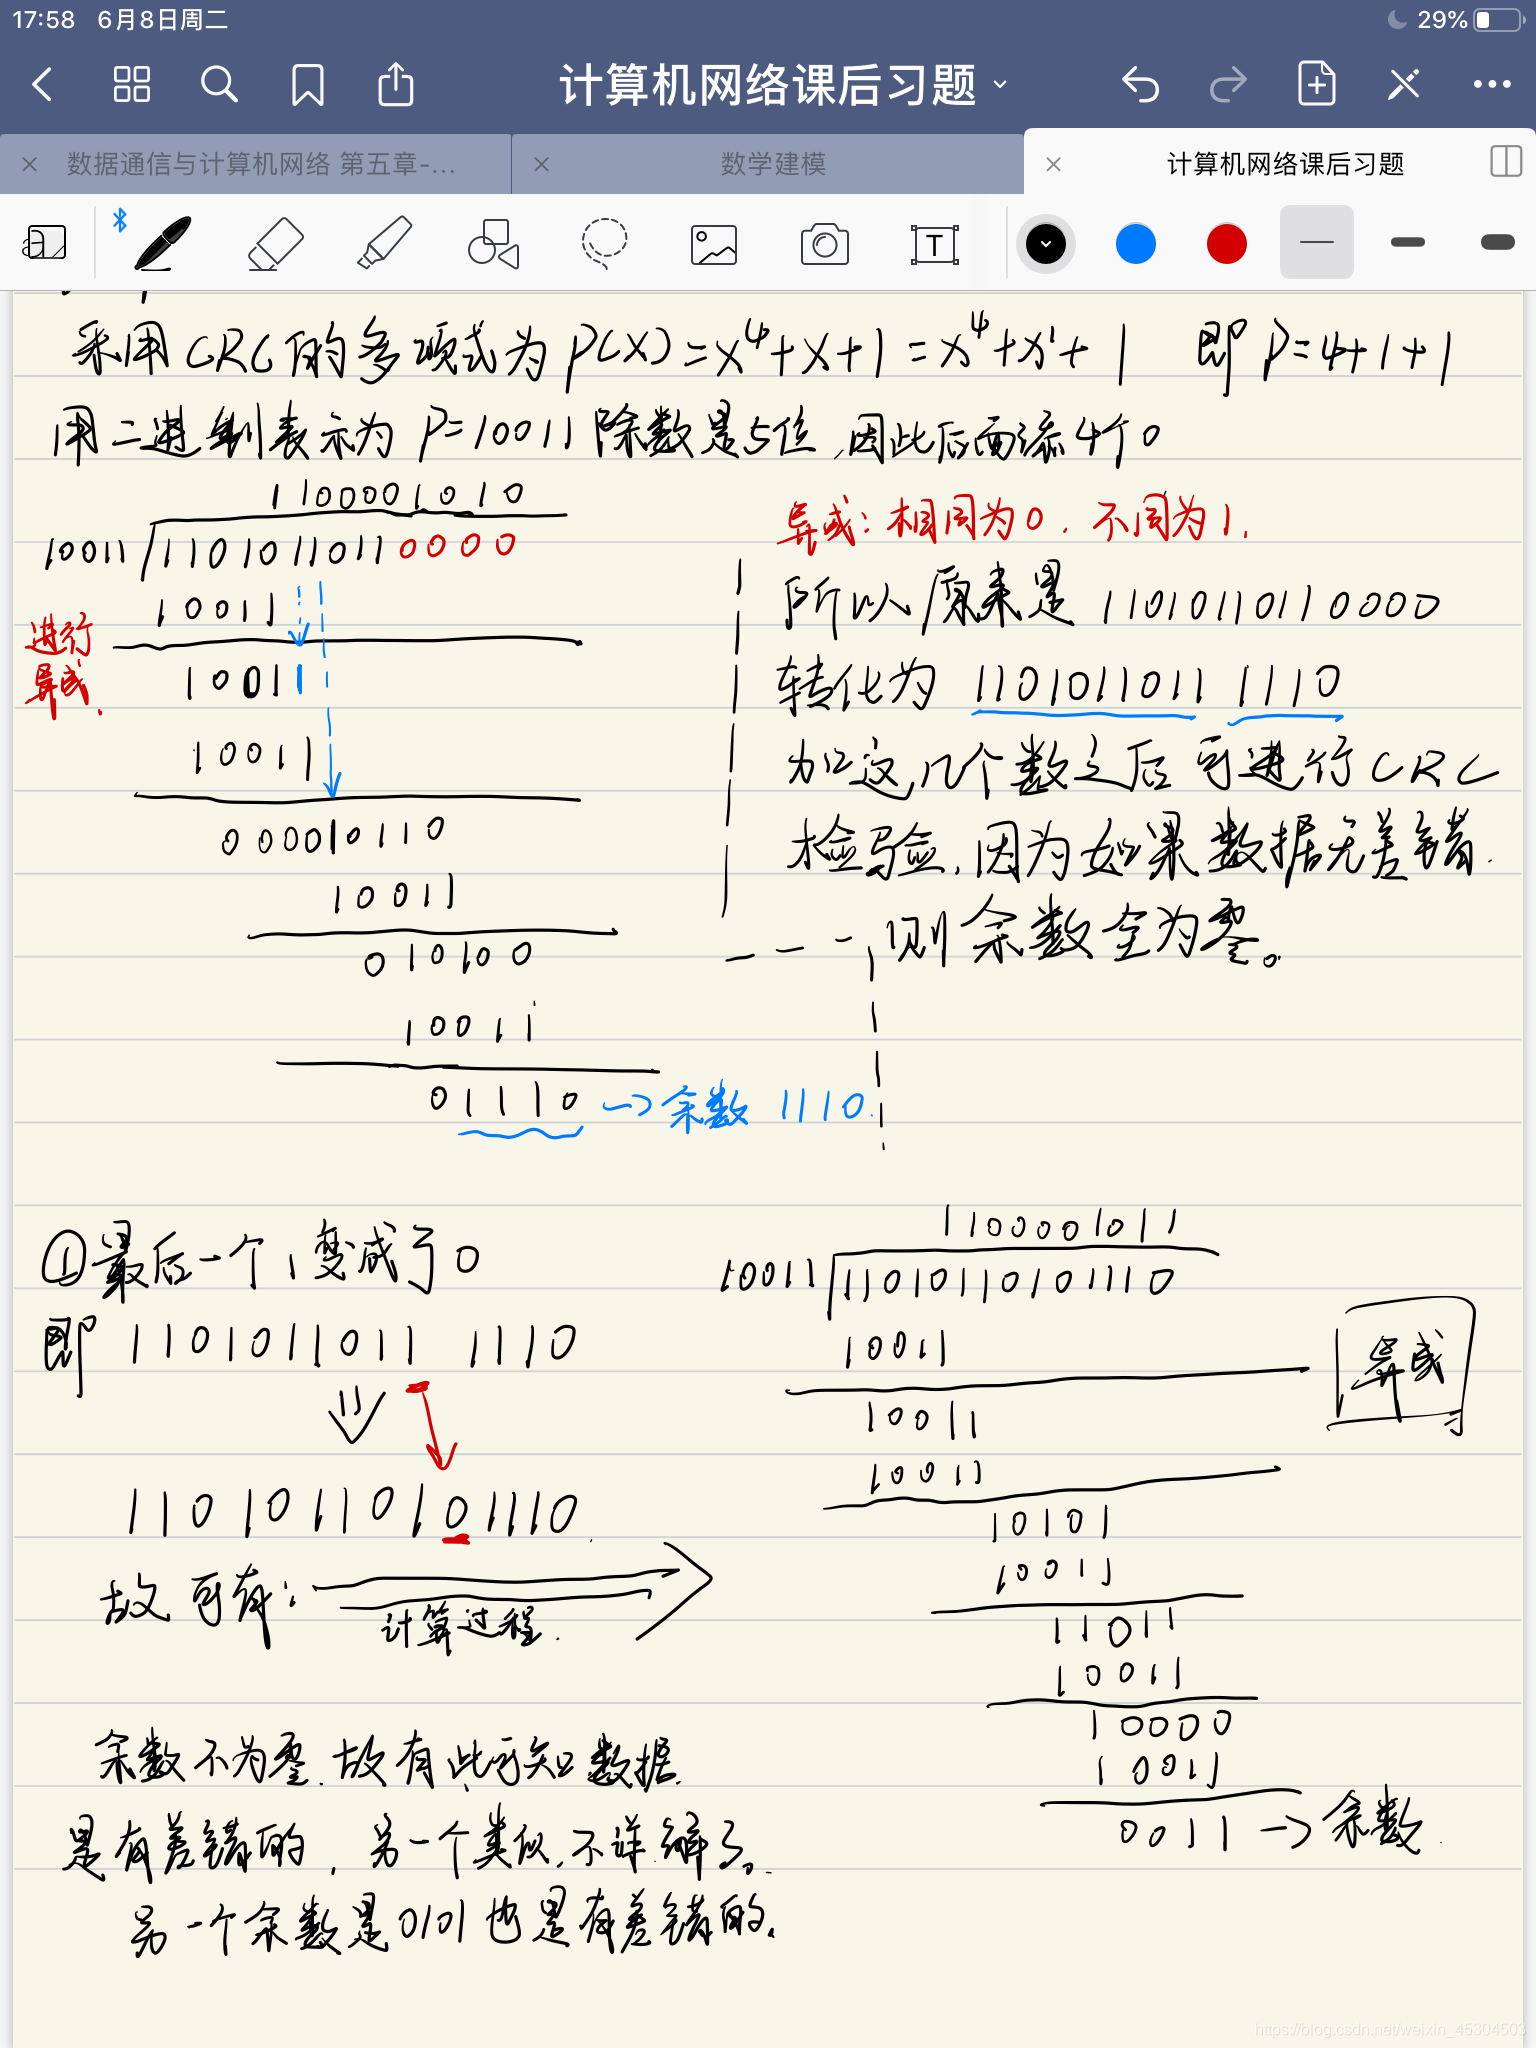 17:58 6月8日周二
29%
计算机网络课后习题
数据通信与计算机网络 第五章-...
数学建模
计算机网络课后习题
T
采用CRC的多项式为P(X)=x⁴+x+1=x⁴+x¹+1 即P=4+1+1
用二进制表示为 P=10011 除数是5位,因此后面添4个0
1100001010
10011 11010110110000
10011
进行
异或.
10011
10011
000010110
10011
010100
10011
01110 → 余数 1110.
异或:相同为0.不同为1.
所以原来是 11010110110000
转化为 1101011011 1110
加这几个数之后可进行CRC
检验,因为如果数据无差错.
则余数全为零。
①最后一个1变成了0
即 1101011011 1110
11010110101110
故可有:
计算过程.
1100001011
10011 11010110101110
10011
10011
10011
10101
10011
11011
10011
10000
10011
0011 → 余数
异或
余数不为零.故有此可知数据
是有差错的,另一个类似,不详解了。
另一个余数是0101也是有差错的.
https://blog.csdn.net/weixin_45304503